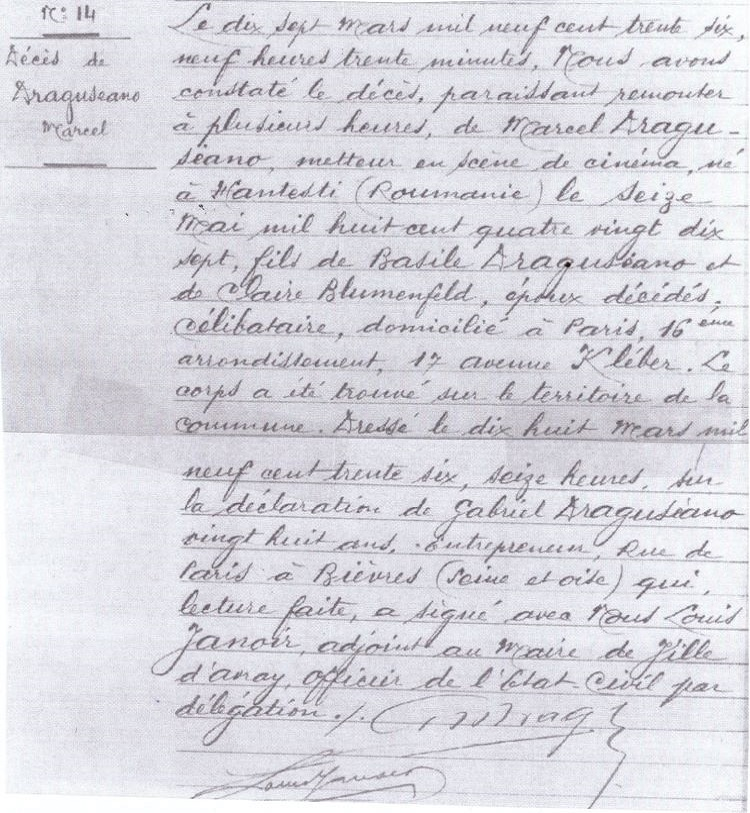 N° 14
Décès de
Draguseano
Marcel
Le dix sept Mars mil neuf cent trente six,
neuf heures trente minutes, Nous avons
constaté le décès, paraissant remonter
à plusieurs heures, de Marcel Dragu-
séano, metteur en scène de cinéma, né
à Hantesti (Roumanie) le seize
Mai mil huit cent quatre vingt dix
sept, fils de Basile Draguséano et
de Claire Blumenfeld, époux décédés;
célibataire, domicilié à Paris, 16 ème
arrondissement, 17 avenue Kléber. Le
corps a été trouvé sur le territoire de la
commune. Dressé le dix huit Mars mil
neuf cent trente six, seize heures, sur
la déclaration de Gabriel Draguséano
vingt huit ans, Entrepreneur, Rue de
Paris à Bièvres (Seine et oise) qui,
lecture faite, a signé avec Nous Louis
Janoir, adjoint au Maire de Ville
d'avray, officier de l'Etat-Civil par
délégation ./.